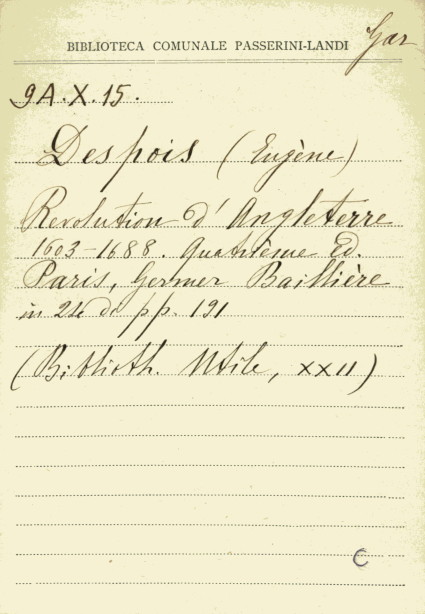 Gar
BIBLIOTECA COMUNALE PASSERINI-LANDI
9A.X.15.
Despois (Eugène)
Revolution d'Angleterre
1603-1688. Quatrième Ed.
Paris, Germer Baillière
in 24° di pp. 191
(Biblioth. Utile, XXII)
C